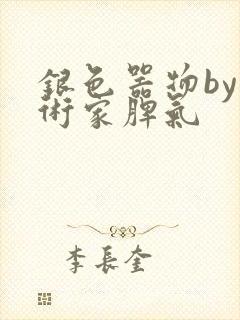 銀色器物by
術家脾氣
李長奎